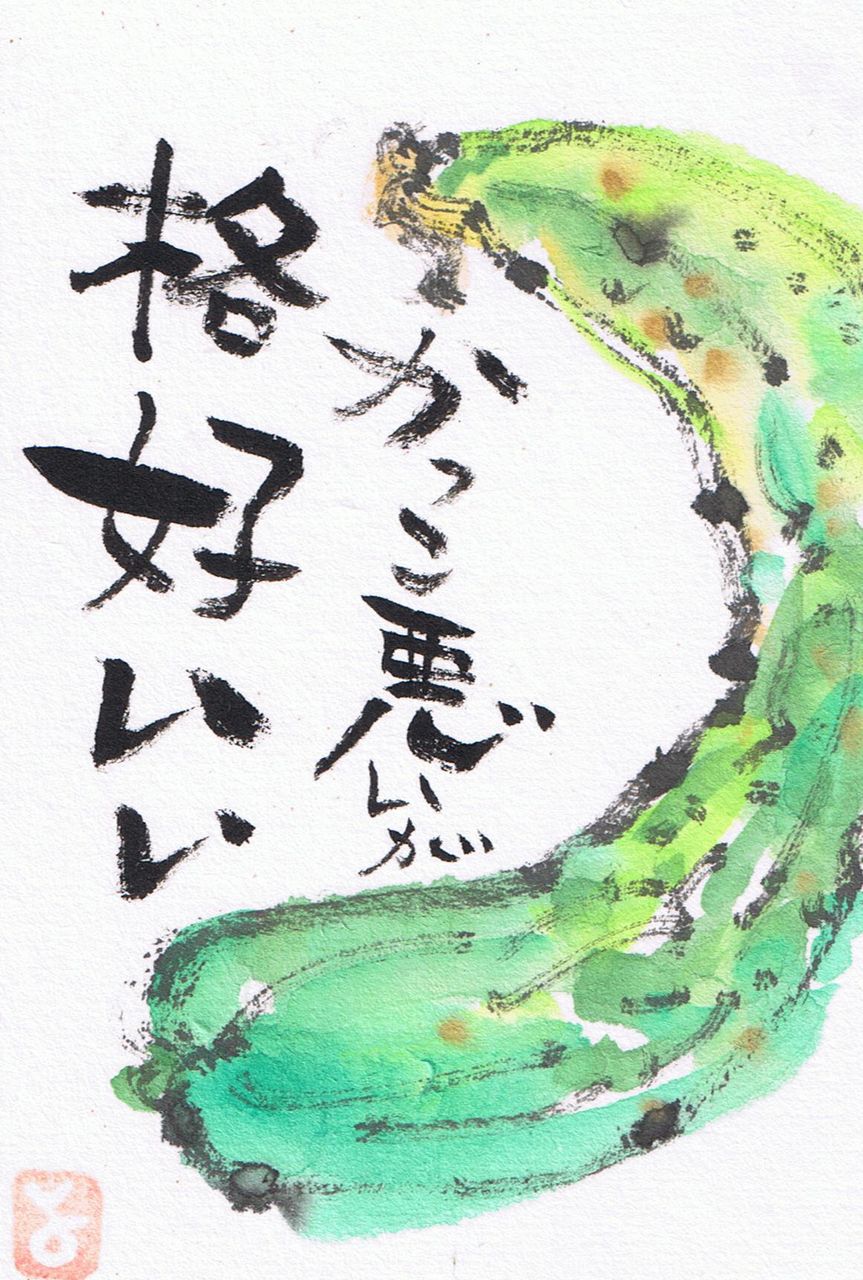 かっこ悪いが
格好いい